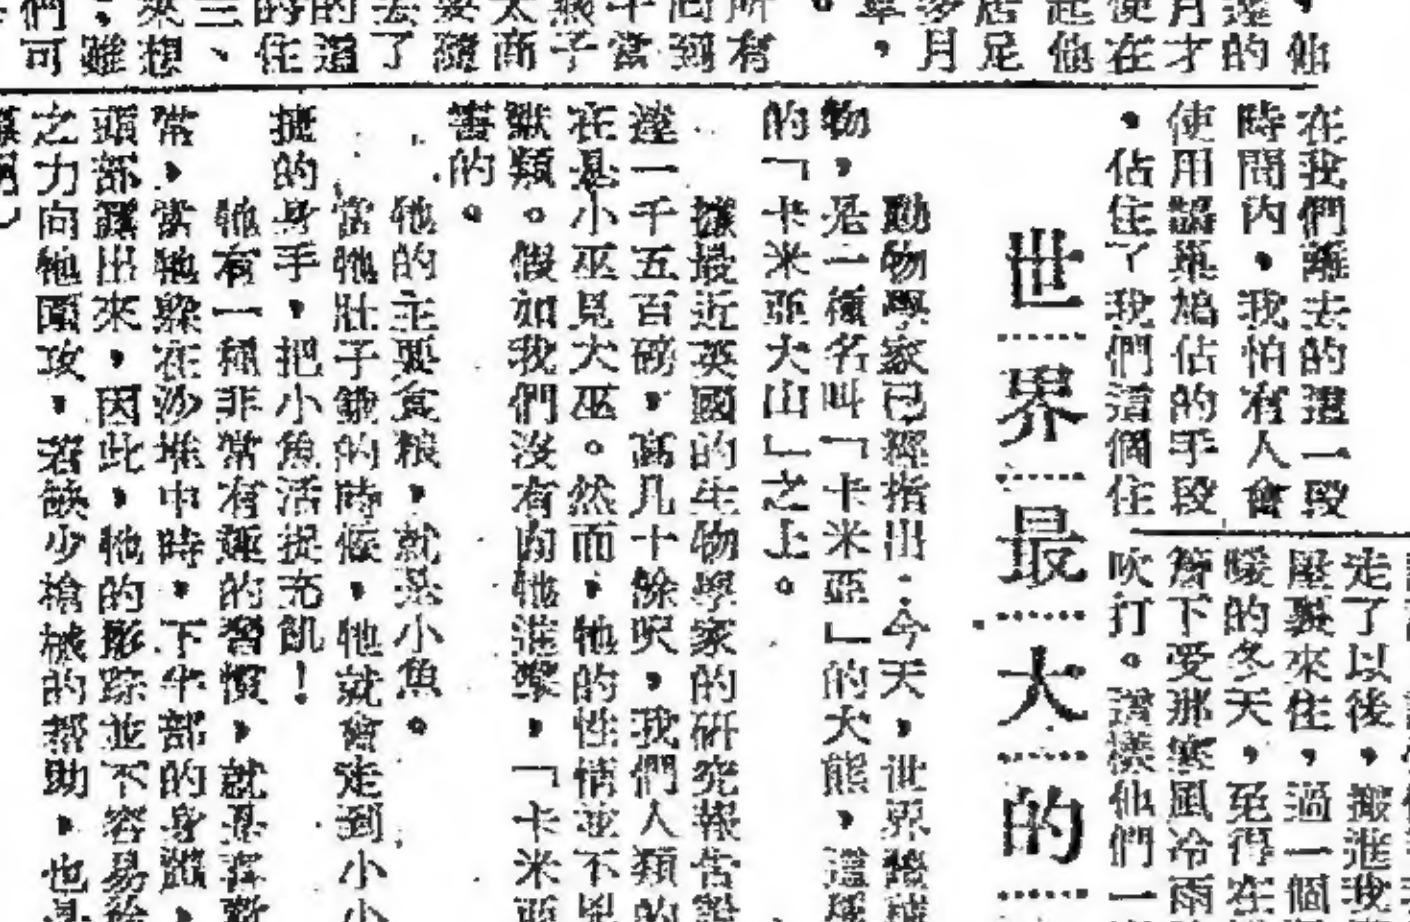 ，他
遠的
月才
使在
起他
居足
多月
，
。
所有
回到
中當
子
太商
要隨
去了
的這
的住
三、
來想
；雖
們可
在我們離去的這一段
時間內，我怕有人會
使用鵲巢鳩佔的手段
，佔住了我們這個住
走了以後，搬進我
屋裏來住，過一個
暖的冬天，免得在
簷下受那寒風冷雨
吹打。這樣他們一
世界最大的
動物學家已經指出：今天，世界
物，是一種名叫「卡米亞」的大熊，這
的「卡米亞大山」之上。
據最近英國的生物學家的研究報告說
達一千五百磅，高几十餘呎，我們人類的
在是小巫見大巫。然而，牠的性情並不
獸類。假如我們沒有向牠進擊，「卡米亞
害的。
牠的主要食粮，就是小魚。
當牠肚子餓的時候，牠就會走到小
捷的身手，把小魚活捉充飢！
牠有一種非常有趣的習慣，就是喜歡
常，當牠躲在沙堆中時，下半部的身體，
頭部露出來，因此，牠的影踪並不容易給
之力向牠圍攻，若缺少槍械的帮助，也是